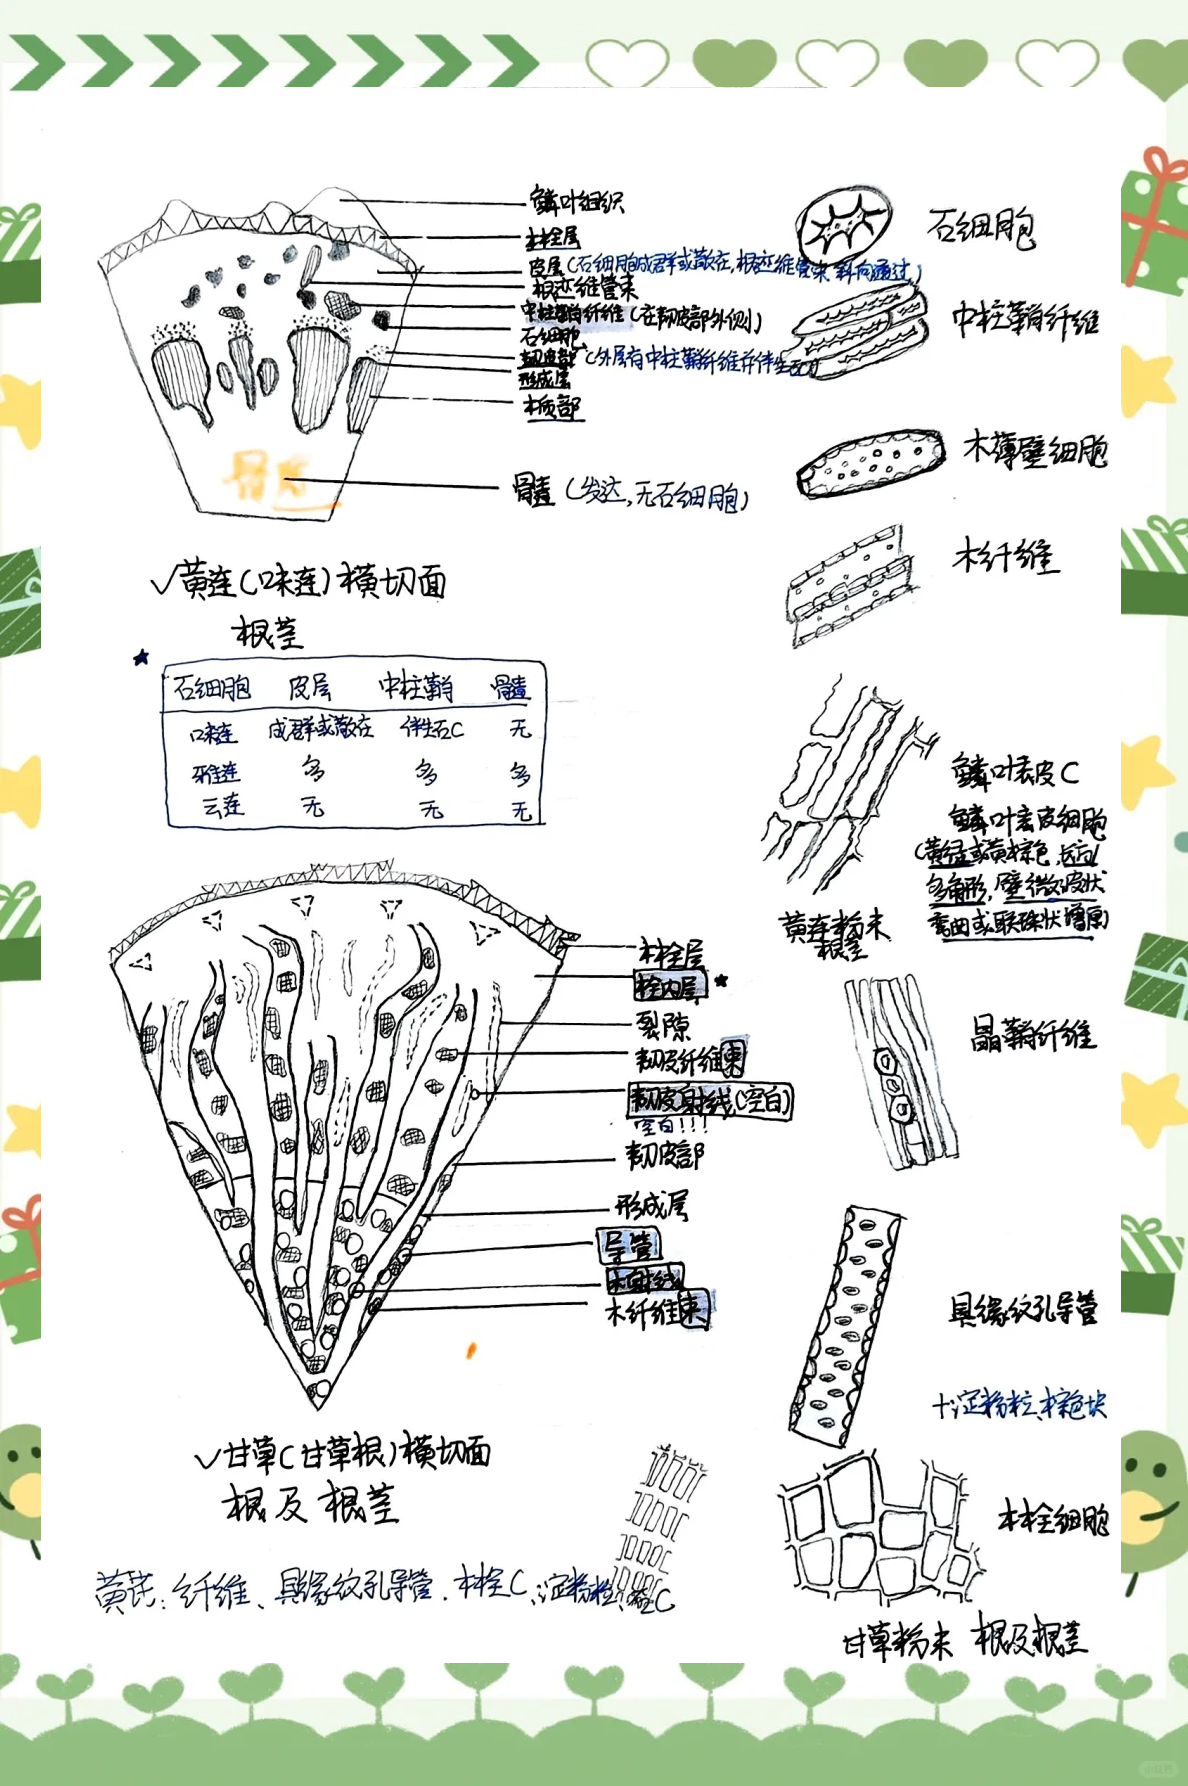 鳞叶组织
木栓层
皮层(石细胞成群或散在,根迹维管束斜向通过)
根迹维管束
中柱鞘纤维(在韧皮部外侧)
石细胞
韧皮部(外层有中柱鞘纤维并伴生石C)
形成层
木质部
骨髓
骨髓(发达,无石细胞)
✓黄连(味连)横切面
根茎
★
石细胞 皮层 中柱鞘 骨髓
味连 成群或散在 伴生石C 无
雅连 多 多 多
云连 无 无 无
石细胞
中柱鞘纤维
木薄壁细胞
木纤维
鳞叶表皮C
鳞叶表皮细胞
(黄绿或黄棕色,长方/
多角形,壁微波状
弯曲或联珠状增厚)
黄连粉末
根茎
木栓层
栓内层 ★
裂隙
韧皮纤维束
韧皮射线(空白)
空白!!!
韧皮部
形成层
导管
木射线
木纤维束
✓甘草(甘草根)横切面
根及根茎
晶鞘纤维
具缘纹孔导管
+淀粉粒、棕色块
木栓细胞
甘草粉末 根及根茎
黄芪:纤维、具缘纹孔导管、木栓C、淀粉粒、石C